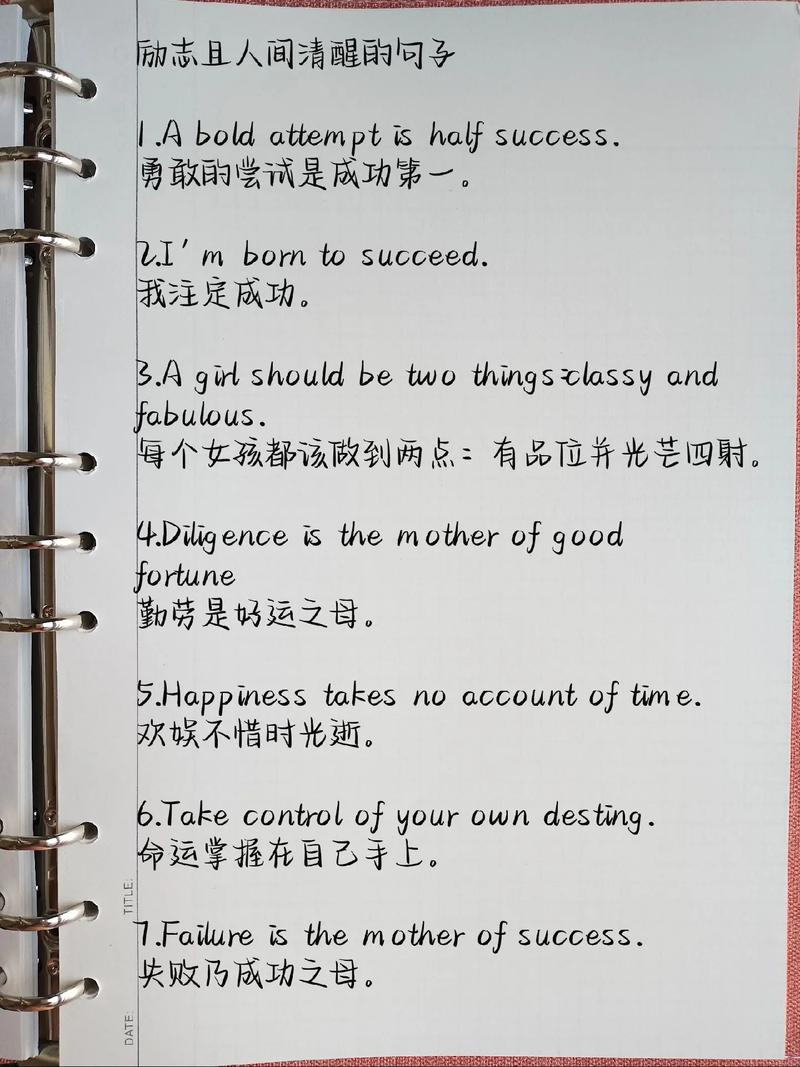 励志且人间清醒的句子
1.A bold attempt is half success.
勇敢的尝试是成功第一。
2.I'm born to succeed.
我注定成功。
3.A girl should be two things:classy and
fabulous.
每个女孩都该做到两点：有品位并光芒四射。
4.Diligence is the mother of good
fortune
勤劳是好运之母。
5.Happiness takes no account of time.
欢娱不惜时光逝。
6.Take control of your own desting.
命运掌握在自己手上。
7.Failure is the mother of success.
失败乃成功之母。
TITLE:
DATE: